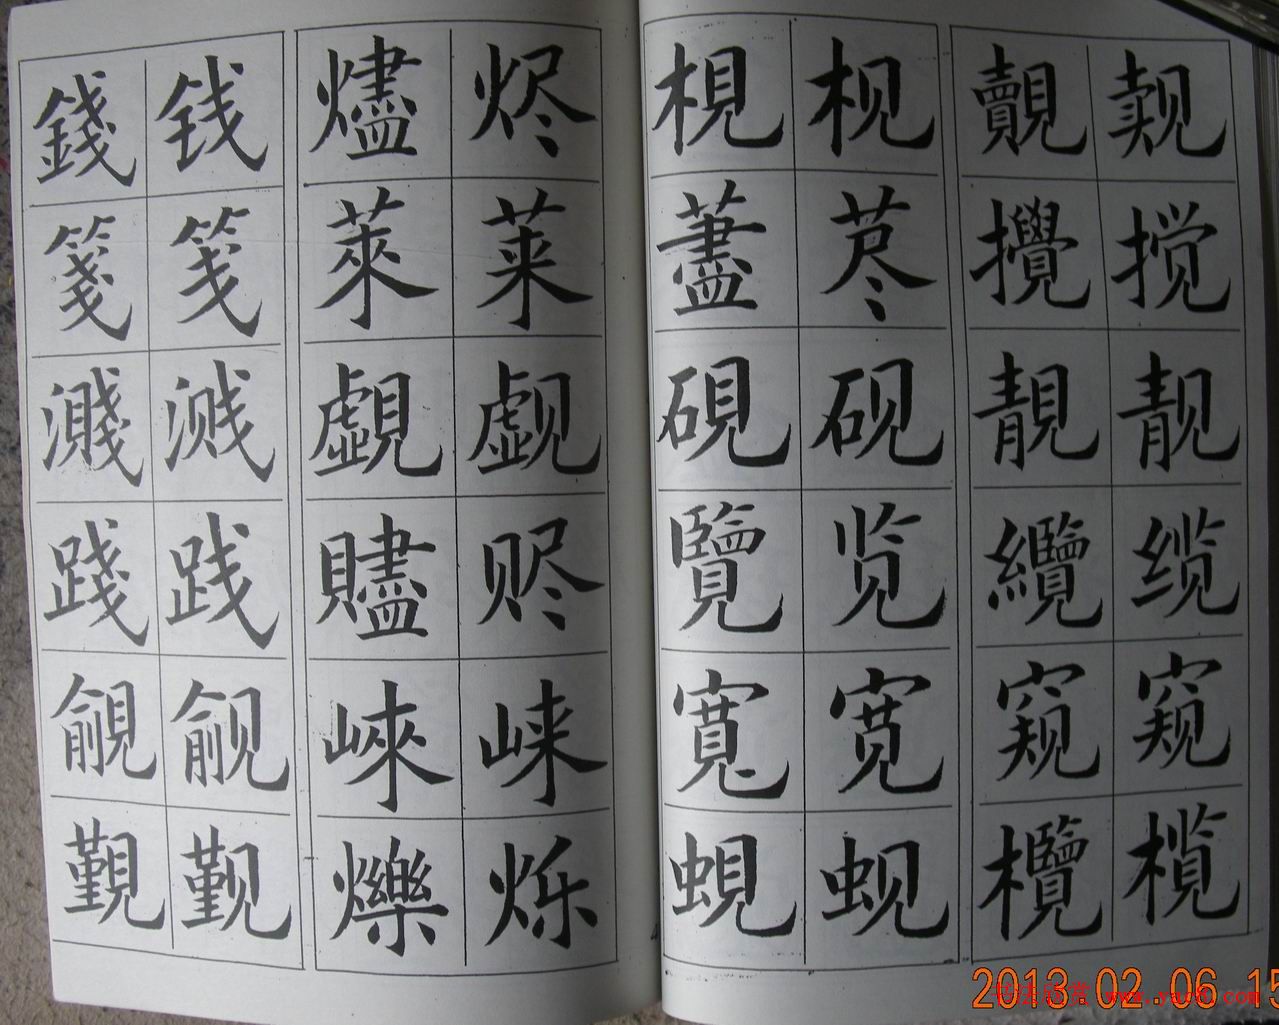 錢 钱 燼 烬 梘 枧 覿 觌
箋 笺 萊 莱 藎 荩 攪 搅
濺 溅 覷 觑 硯 砚 靚 靓
踐 践 贐 赆 覽 览 纜 缆
覦 觎 崍 崃 寬 宽 窺 窥
覲 觐 爍 烁 蜆 蚬 欖 榄
2013.02.06 15
www.yac8.com